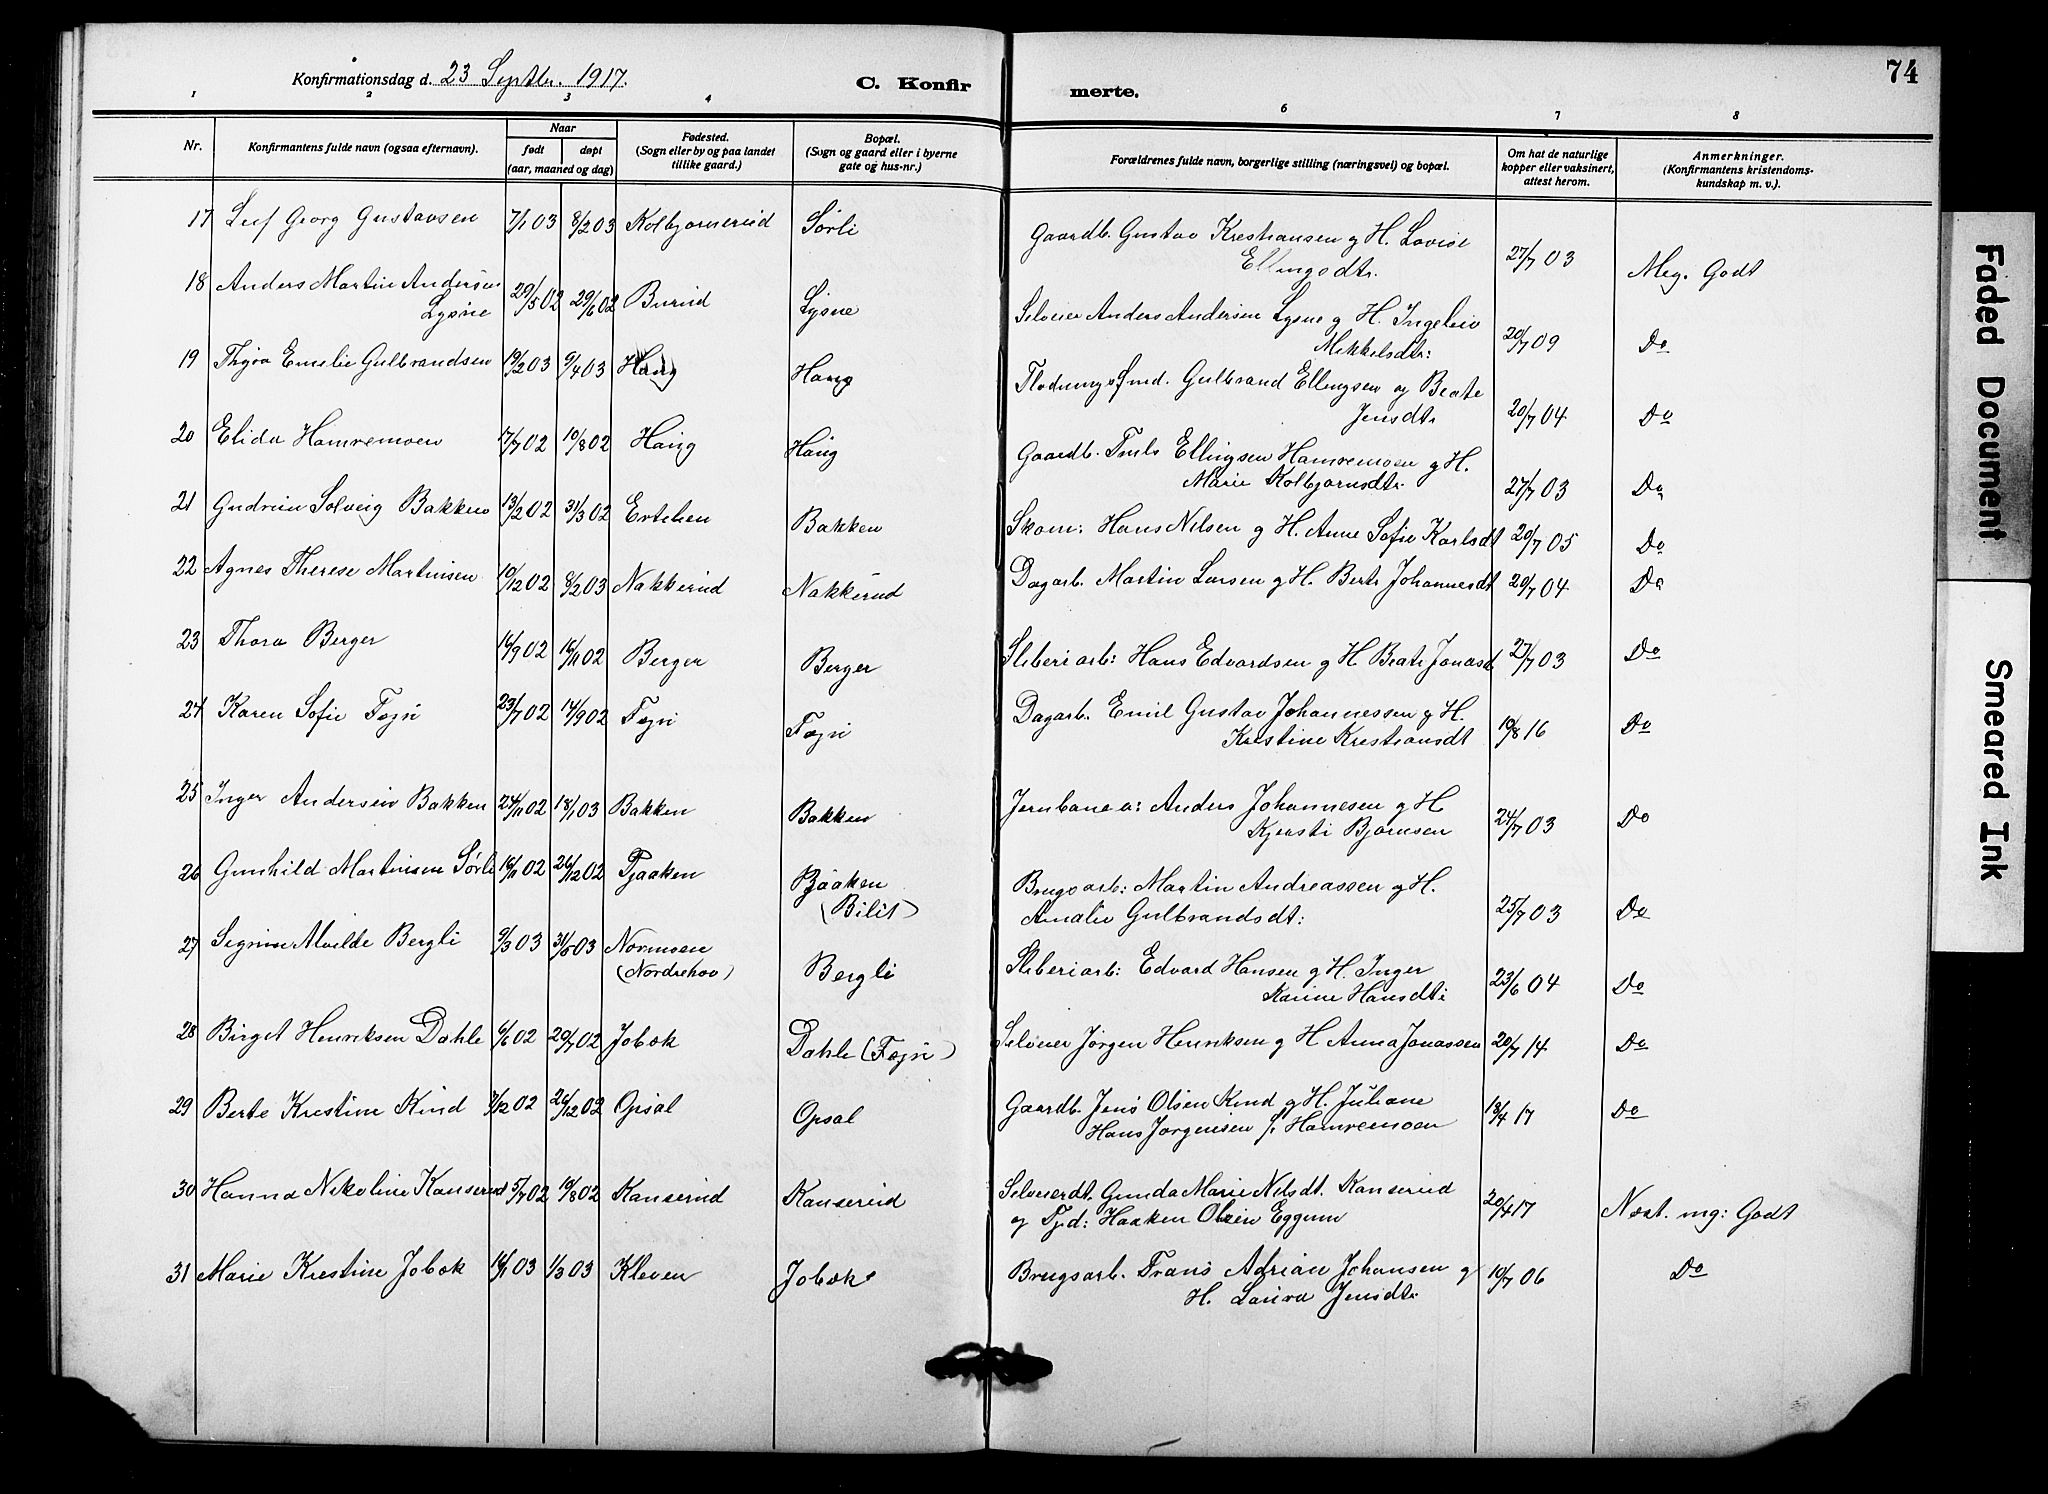 74
Konfirmationsdag d. 23 Septbr. 1917.
C. Konfirmerte.
1 2 3 4 6 7 8
Nr.
Konfirmantens fulde navn (ogsaa efternavn).
Naar
født
døpt
(aar, maaned og dag)
Fødested.
(Sogn eller by og paa landet
tillike gaard.)
Bopæl.
(Sogn og gaard eller i byerne
gate og hus-nr.)
Forældrenes fulde navn, borgerlige stilling (næringsvei) og bopæl.
Om hat de naturlige
kopper eller vaksinert,
attest herom.
Anmerkninger.
(Konfirmantens kristendoms-
kundskap m. v.).
17 Leif Georg Gustavsen 7/1 03 8/2 03 Kolbjørnerud Sørli Gaardb. Gustav Kristiansen g H. Lovise
Ellingsdtr. 27/7 03 Meg. Godt
18 Anders Martin Andersen
Lysne 29/5 02 29/6 02 Burud Lysne Selveier Anders Andersen Lysne g H. Ingeleiv
Mikkelsdtr: 20/7 09 Do
19 Thyra Emelie Gulbrandsen 19/2 03 9/4 03 Haug Haug Gulbrand Ellingsen og Beate
Jensdtr 20/7 04 Do
20 Elida Hamremoen 17/7 02 10/8 02 Haug Haug Gaardb. Truls Ellingsen Hamremoen g H.
Marie Kolbjørnsdtr. 27/7 03 Do
21 Gudrun Solveig Bakken 13/2 02 31/3 02 Ertelien Bakken Skom: Hans Nilsen g H. Anne Sofie Karlsdt 20/7 05 Do
22 Agnes Therese Martinsen 10/12 02 8/2 03 Nakkerud Nakkerud Dagarb. Martin Larsen g H. Berte Johannesdt 20/7 04 Do
23 Thora Berger 16/9 02 16/11 02 Berger Berger Sliberiarb: Hans Edvardsen g H Beate Jonasd 27/7 03 Do
24 Karen Sofie Fegri 23/7 02 14/9 02 Fegri Fegri Dagarb. Emil Gustav Johannessen g H.
Kristine Kristiansdt 10/8 16 Do
25 Inger Andersen Bakken 24/11 02 18/1 03 Bakken Bakken Jernbane a: Anders Johannesen g H
Kjersti Bjørnsen 24/7 03 Do
26 Gunhild Martinsen Sørli 16/11 02 26/12 02 Bjaaken
(Bilit) Brugsarb: Martin Andreassen g H.
Amalie Gulbrandsdt: 25/7 03 Do
27 Sigrun Alvilde Bergli 9/3 03 31/5 03 Normoen
(Nordrehov) Bergli Sliberiarb: Edvard Hansen g H. Inger
Karine Hansdt: 23/6 04 Do
28 Birgit Henriksen Dahle 6/6 02 20/7 02 Jobøk Dahle (Fegri) Selveier Jørgen Henriksen g H Anna Jonassen 20/7 14 Do
29 Berte Kristine Kind 7/12 02 26/12 02 Opsal Opsal Gaardb. Jens Olsen Kind g H. Juliane
Hans Jørgensen f. Hamremoen 18/4 17 Do
30 Hanna Nikoline Kanserud 5/7 02 10/8 02 Kanserud Kanserud Selveierdt. Gunda Marie Nilsdt. Kanserud
og Tjd: Haaken Olsen Eggum 20/4 17 Næst. mg: Godt
31 Marie Kristine Jobøk 16/1 03 1/3 03 Kleven Jobøk Brugsarb. Frans Adrian Johansen g
H. Laura Jensdt. 10/7 06 Do
Faded Document
Smeared Ink